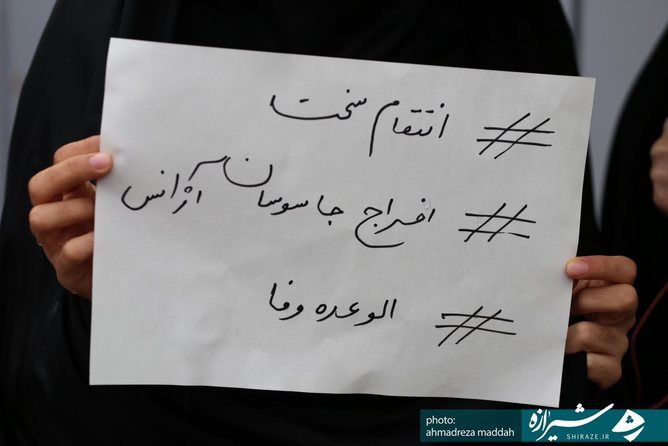 # انتقام سخت
# افراج جاسوسان آژانس
# الوعده وفا
photo:
ahmadreza maddah
شیرازه
SHIRAZE.IR